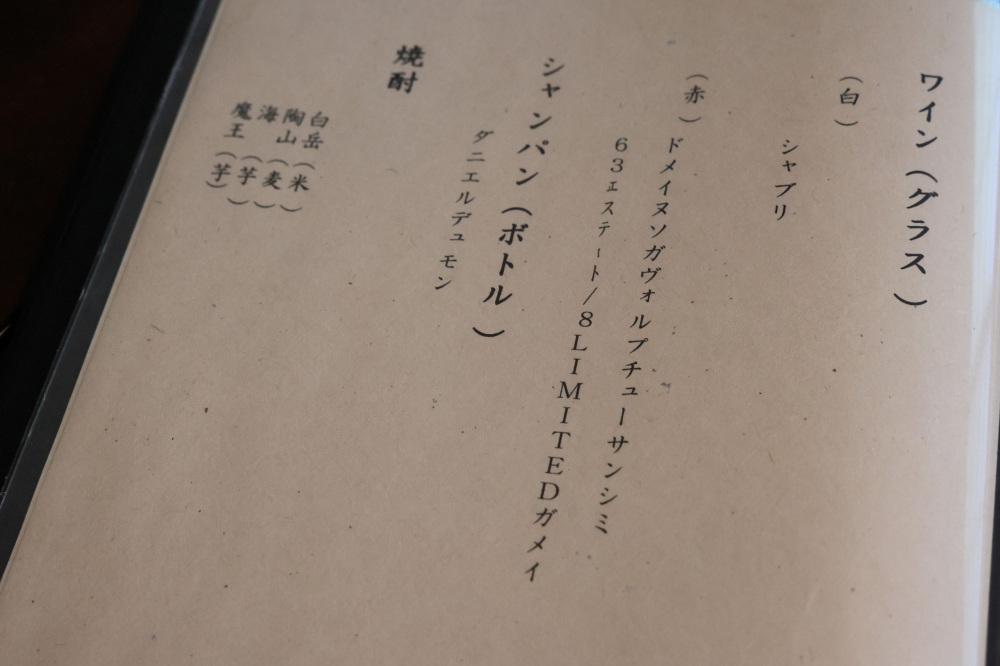 ワイン（グラス）
（白）
シャブリ
（赤）
ドメイヌソガヴォルプチューサンシミ
63エステート/8LIMITEDガメイ
シャンパン（ボトル）
ダニエルデュモン
焼酎
白岳（米）
陶山（麦）
海（芋）
魔王（芋）